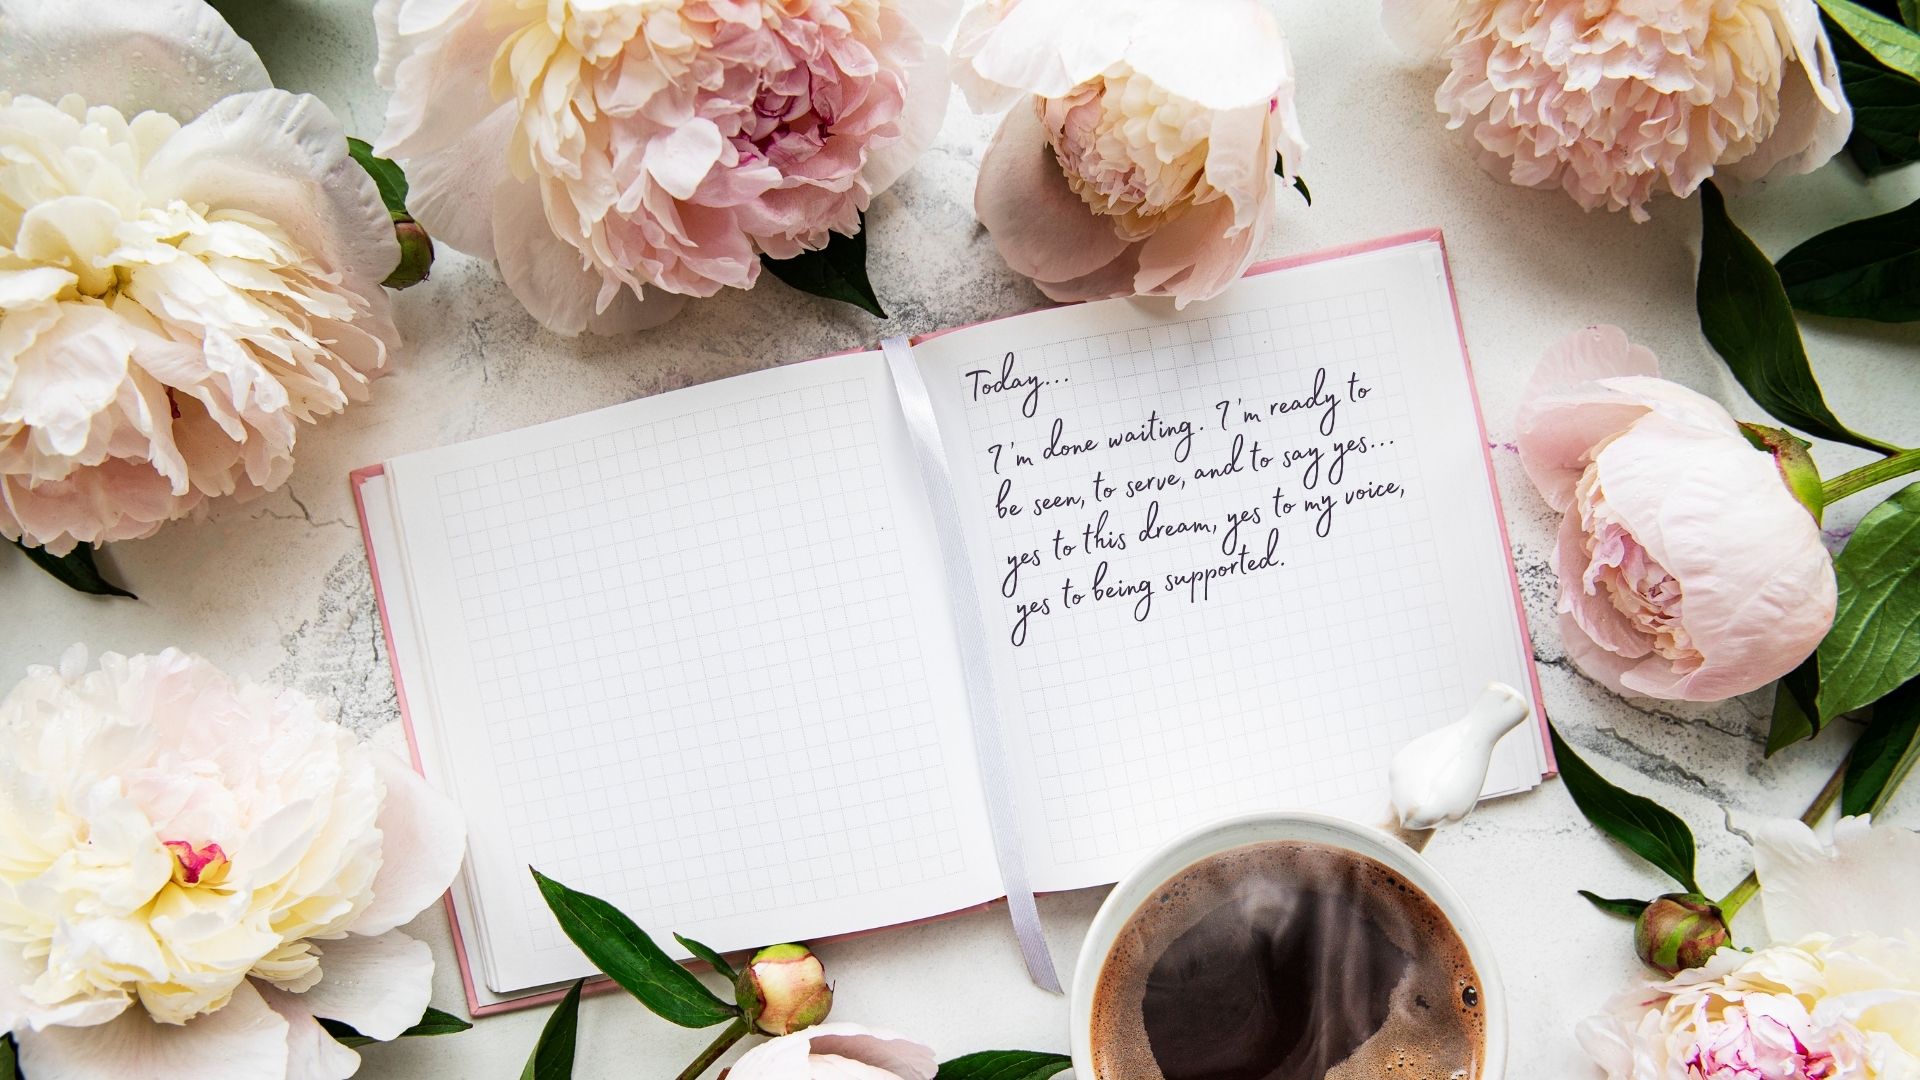 Today...
I'm done waiting. I'm ready to
be seen, to serve, and to say yes...
yes to this dream, yes to my voice,
yes to being supported.